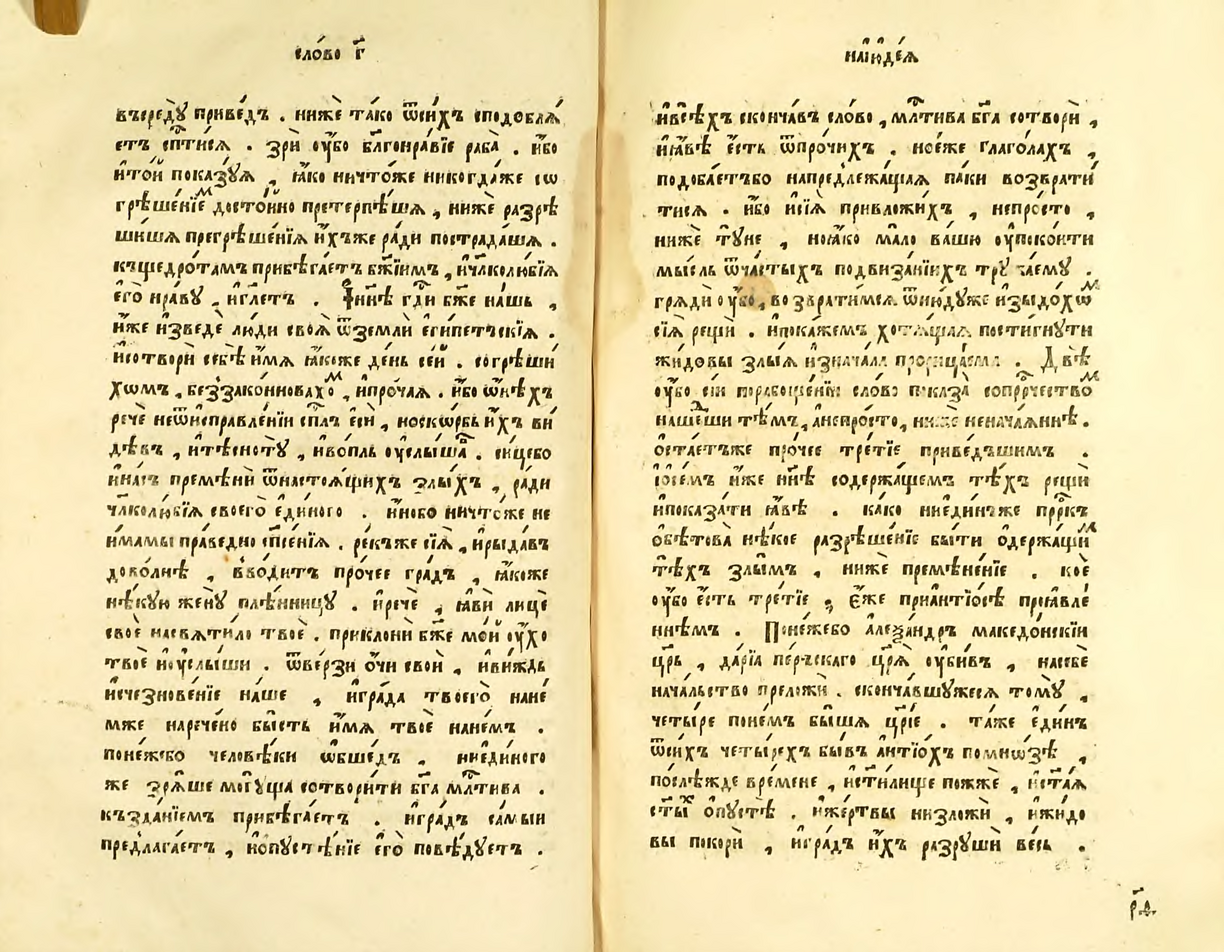 сло́во г҃
въере́дꙋ приве́дъ . нижѐ та́ко ѿси́хъ сподоблѧ́
етъ сп҃тисѧ . зрѝ ᲂу҆́бо бл҃гонра́вїе раба̀ . и҆́бо
и҆то́й показꙋ́ѧ , ꙗ҆́ко ничто́же никогда́же со
грѣше́нїемъ досто́йно претерпѣ́шѧ , нижѐ разрѣ
ши́шѧ прегрѣше́нїѧ и҆́хъже ра́ди пострада́шѧ .
къщедро́тамъ прибѣга́етъ бж҃їимъ , и҆чл҃колю́бїѧ
є҆го̀ нра́вꙋ , и҆гл҃етъ . И҆ нн҃ѣ гд҃и бж҃е на́шь ,
и҆́же и҆зведѐ лю́ди своѧ̀ ѿземлѝ є҆ги́петъскїѧ .
и҆сотворѝ себѣ̀ и҆́мѧ ꙗ҆́коже де́нь се́й . согрѣши́
хѡмъ , беззако́нновахом , и҆про́чаѧ . и҆́бо ѡ҆нѣ́хъ
речѐ неѡ҆исправле́нїи сп҃лъ є҆сѝ , носкѡ́рбь и҆́хъ ви́
дѣвъ , и҆тѣснотꙋ̀ , и҆во́пль ᲂу҆слы́ша . си́цебо
и҆на́съ премѣнѝ ѿнастоѧ́щихъ злы́хъ , ра́ди
чл҃колю́бїѧ своегѡ̀ є҆ди́ного . и҆́нобо ничто́же не
и҆́мамы пра́ведно сп҃се́нїѧ . ре́къже сїѧ̀ , и҆рыда́въ
дово́лнѣ , вво́дитъ про́чее гра́дъ , ꙗ҆́коже
нѣ́кꙋю женꙋ̀ плѣ́нницꙋ . и҆речѐ , ꙗ҆вѝ лицѐ
своѐ насвѧти́ло твоѐ . приклонѝ бж҃е мо́й ᲂу҆́хо
твоѐ и҆ᲂу҆слы́ши . ѿве́рзи ѻ҆́чи своѝ , и҆ви́ждь
и҆счезнове́нїе на́ше , и҆гра́да твоего̀ нане
мже нарече́но бы́сть и҆́мѧ твоѐ нане́мъ .
поне́жебо человѣ́ки ѡ҆бше́дъ , ниеди́ного
же зрѧ́ше могꙋ́ща сотвори́ти бг҃а млⷭ҇тива .
къзда́нїемъ прибѣга́етъ . и҆гра́дъ са́мыи
предлага́етъ , и҆ѻпꙋстѣ́нїе є҆го̀ повѣ́дꙋетъ .
наїю҆де́ѧ
и҆всѣ́хъ сконча́въ сло́во , млⷭ҇тива бг҃а сотворѝ ,
и҆ꙗ҆́вѣ є҆́сть ѿпро́чихъ . но́еже глаго́лахъ ,
подоба́етъбо напредлежа́щаѧ па́ки возврати́
тисѧ . и҆́бо и҆сїѧ̀ приложи́хъ , непро́сто ,
нижѐ тꙋ́не , ноꙗ҆́ко ма́ло ва́шю ᲂу҆поко́ити
мы́сль ѿча́стыхъ подвиза́нїихъ трꙋ ча́емꙋ .
грѧдѝ ᲂу҆́бо, возврати́мсѧ ѿню́дꙋже и҆зыдо́хѡ
сїѧ̀ рещѝ . и҆пока́жемъ хотѧ́щаѧ пости́гнꙋти
жи́довы злы́ѧ и҆знача́ла прорица́ема . Двѣ̀
ᲂу҆́бо сїи порабоще́нїи сло́во показа̀ сопрⷪ҇чеством
наше́ши тѣ́мъ, а҆непро́сто, нижѐ неначаѧ́ннѣ.
ѻ҆ста́етъже про́чее тре́тїе приве́дъшимъ .
ѻ҆се́мъ и҆́же нн҃ѣ содержа́щемъ тѣ́хъ рещѝ
и҆показа́ти ꙗ҆́вѣ . ка́ко ниеди́нъже прⷪ҇ркъ
ѻ҆бѣтова̀ нѣ́кое разрѣше́нїе бы́ти ѻ҆держа́щим
тѣ́хъ злы́мъ , нижѐ премѣне́нїе . ко́е
ᲂу҆́бо є҆́сть тре́тїе ; є҆́же приантїо́сѣ проꙗвле́
ннѣмъ . Поне́жебо а҆леѯа́ндръ македо́нскїи
цр҃ь , да́рїа пе́ръскаго цр҃ѧ̀ ᲂу҆би́въ , насебѐ
нача́льство преложѝ . сконча́вшꙋжесѧ томꙋ̀ ,
четы́ре поне́мъ бы́шѧ цр҃їе . та́же є҆ди́нъ
ѿси́хъ четы́рехъ бы́въ а҆нтїо́хъ помно́зѣ ,
послѣ́жде вре́мене , и҆сти́лище пожжѐ , и҆ст҃аѧ
ст҃ы́хъ ѻ҆пꙋстѣ̀ . и҆же́ртвы низложѝ , и҆жидо
вы покорѝ , и҆гра́дъ и҆́хъ разрꙋшѝ ве́сь .
р҃д.